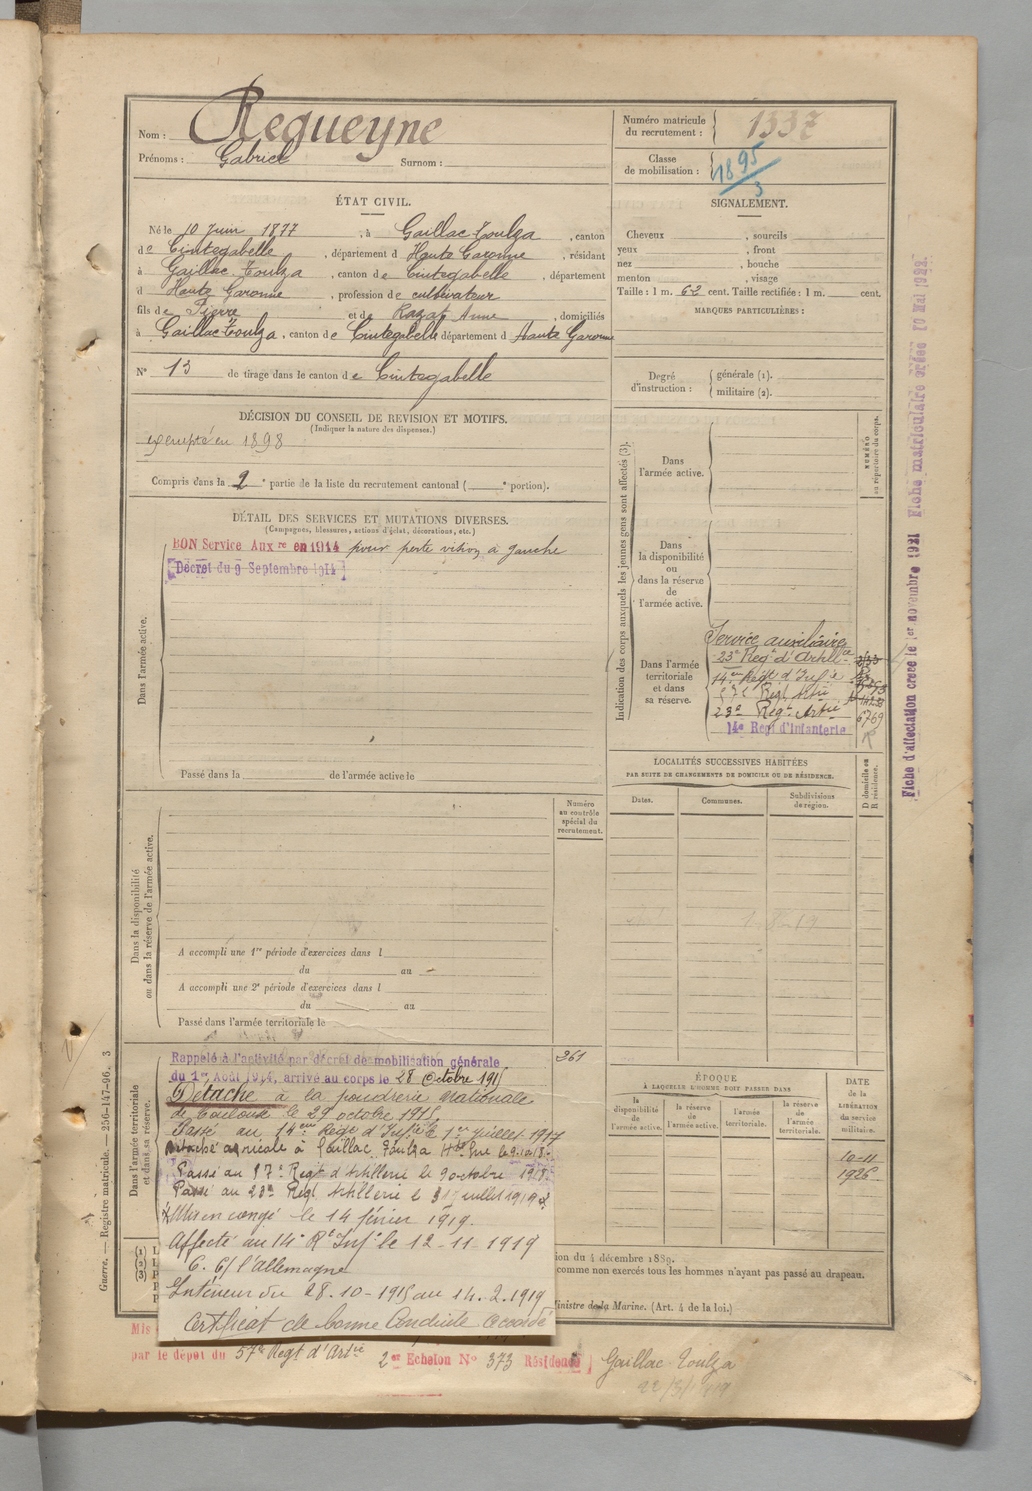 Nom : Regueyne
Prénoms : Gabriel Surnom :
Numéro matricule du recrutement : 1337
Classe de mobilisation : 1895/3
ÉTAT CIVIL.
Né le 10 Juin 1877, à Gaillac-Toulza, canton
de Cintegabelle, département d Haute Garonne, résidant
à Gaillac Toulza, canton de Cintegabelle, département
d Haute Garonne, profession de cultivateur
fils de Pierre et de Anne, domiciliés
à Gaillac-Toulza, canton de Cintegabelle département d Haute Garonne
N° 13 de tirage dans le canton de Cintegabelle
SIGNALEMENT.
Cheveux , sourcils
yeux , front
nez , bouche
menton , visage
Taille : 1 m. 62 cent. Taille rectifiée : 1 m. cent.
MARQUES PARTICULIÈRES :
Degré d'instruction : générale (1).
militaire (2).
DÉCISION DU CONSEIL DE REVISION ET MOTIFS.
(Indiquer la nature des dispenses.)
exempté en 1898
Compris dans la 2e partie de la liste du recrutement cantonal ( e portion).
DÉTAIL DES SERVICES ET MUTATIONS DIVERSES.
(Campagnes, blessures, actions d'éclat, décorations, etc.)
BON Service Auxre en 1914 pour perte vision à gauche
Décret du 9 Septembre 1914
Dans l'armée active.
Passé dans la de l'armée active le
Indication des corps auxquels les jeunes gens sont affectés (3).
NUMÉRO au répertoire du corps.
Dans l'armée active.
Dans la disponibilité ou dans la réserve de l'armée active.
Dans l'armée territoriale et dans sa réserve.
Service auxiliaire
23e Regt d'Artillie
14eme Regt d'Infie
57e Regt Artie
23e Regt Artie
6769
14e Regt d'Infanterie
Fiche d'affectation créée le 1er novembre 1921 Fiche matriculaire créée 10 Mai 1922.
LOCALITÉS SUCCESSIVES HABITÉES
PAR SUITE DE CHANGEMENTS DE DOMICILE OU DE RÉSIDENCE.
Dates. Communes. Subdivisions de région. D domicile ou R résidence.
Dans la disponibilité ou dans la réserve de l'armée active.
Numéro au contrôle spécial du recrutement.
A accompli une 1re période d'exercices dans l
du au
A accompli une 2e période d'exercices dans l
du au
Passé dans l'armée territoriale le
Dans l'armée territoriale et dans sa réserve.
Rappelé à l'activité par décret de mobilisation générale 361
du 1er Août 1914, arrivé au corps le 28 Octobre 1915
Détaché à la poudrerie nationale
de Toulouse le 29 octobre 1915
Passé au 14eme Regt d'Infie le 1er juillet 1917
Détaché agricole à Gaillac Toulza Hte Gne
Passé au 57e Regt d'Artillerie le 9 octobre 1918
Passé au 23e Regt Artillerie le juillet 1919
Mis en congé le 14 février 1919.
Affecté au 14e Rt Infie le 12-11-1919
C. C/ l'Allemagne
Intérieur du 28.10-1915 au 14.2.1919
Certificat de bonne Conduite accordé
ÉPOQUE
À LAQUELLE L'HOMME DOIT PASSER DANS
la disponibilité de l'armée active. la réserve de l'armée active. l'armée territoriale. la réserve de l'armée territoriale.
DATE DE LA LIBÉRATION du service militaire.
10-11
1926
ion du 4 décembre 1889.
comme non exercés tous les hommes n'ayant pas passé au drapeau.
Ministre de la Marine. (Art. 4 de la loi.)
Guerre. — Registre matricule. — 256-147-96. 3
Mis
par le dépôt du 57e Regt d'Artie 2er Echelon N° 373 Résidence Gaillac-Toulza